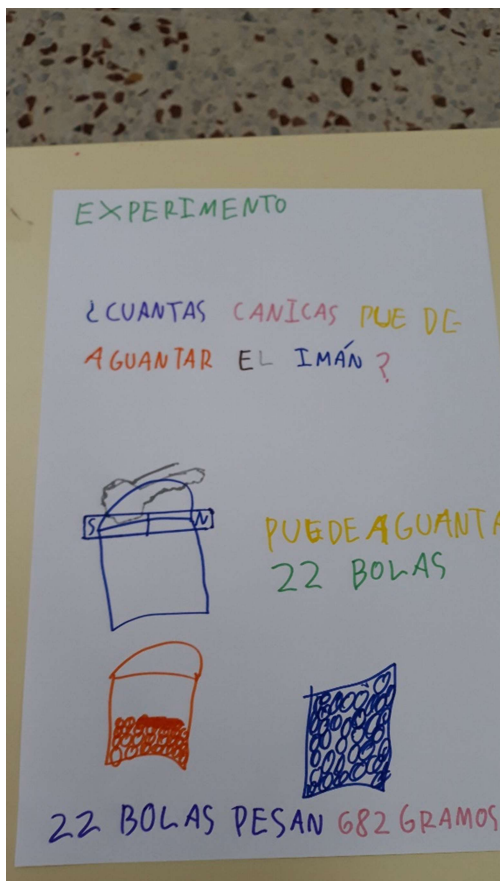 EXPERIMENTO
¿CUANTAS CANICAS PUE DE
AGUANTAR EL IMÁN?
S N
PUEDE AGUANTA
22 BOLAS
22 BOLAS PESAN 682 GRAMOS